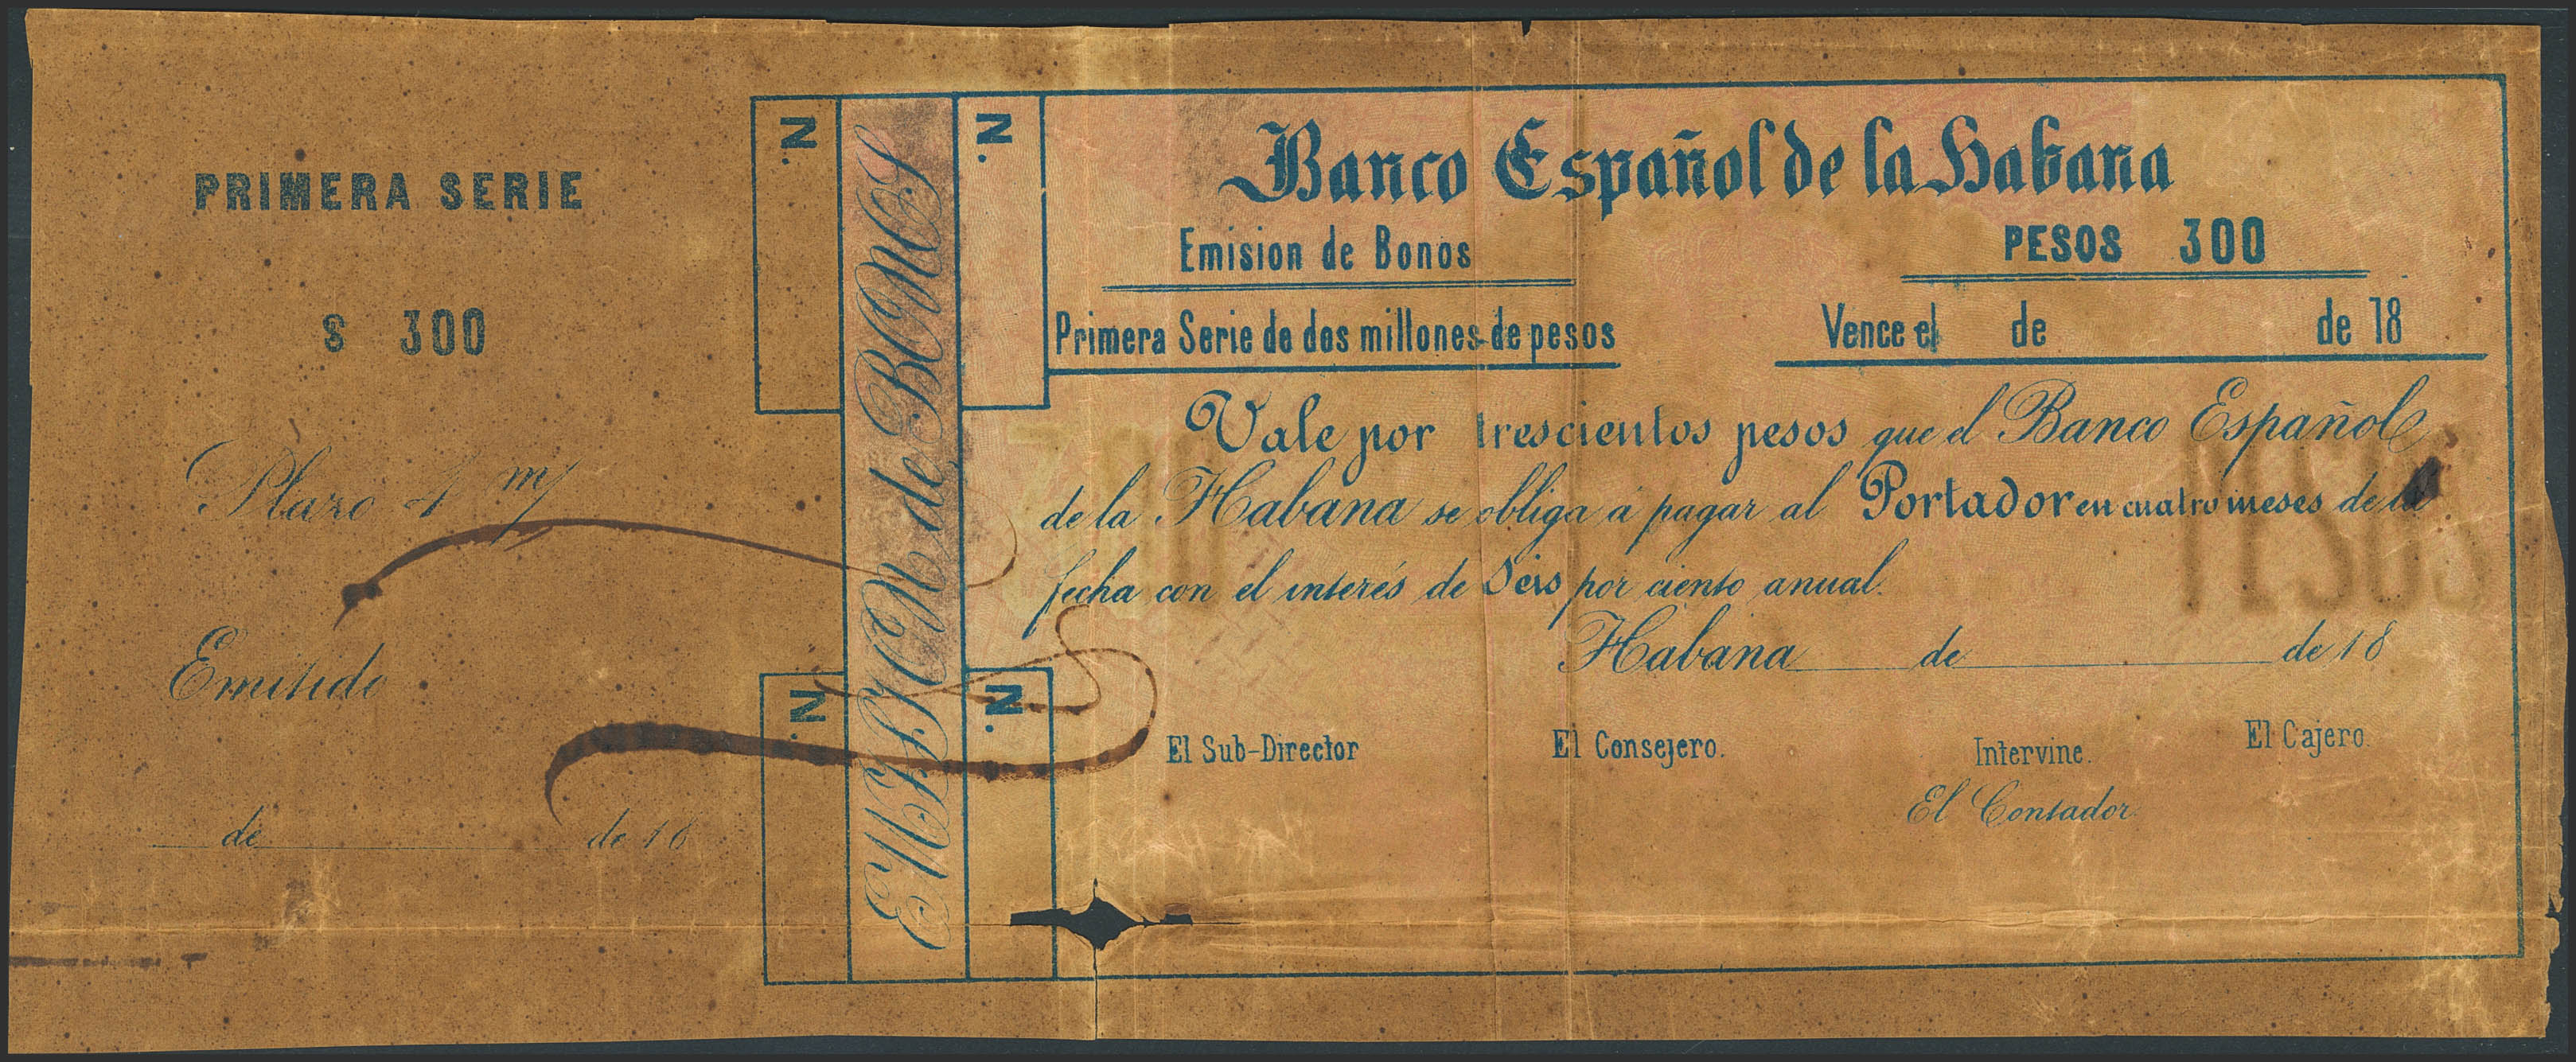 PRIMERA SERIE
$ 300
Plazo 4 m/
Emitido
de de 18
N.
N.
EMISION de BONOS
N.
N.
Banco Español de la Habana
Emision de Bonos
PESOS 300
Primera Serie de dos millones de pesos
Vence el de de 18
Vale por trescientos pesos que el Banco Español
de la Habana se obliga á pagar al Portador en cuatro meses de la
fecha con el interés de Seis por ciento anual.
Habana de de 18
El Sub-Director
El Consejero.
Intervine.
El Contador
El Cajero